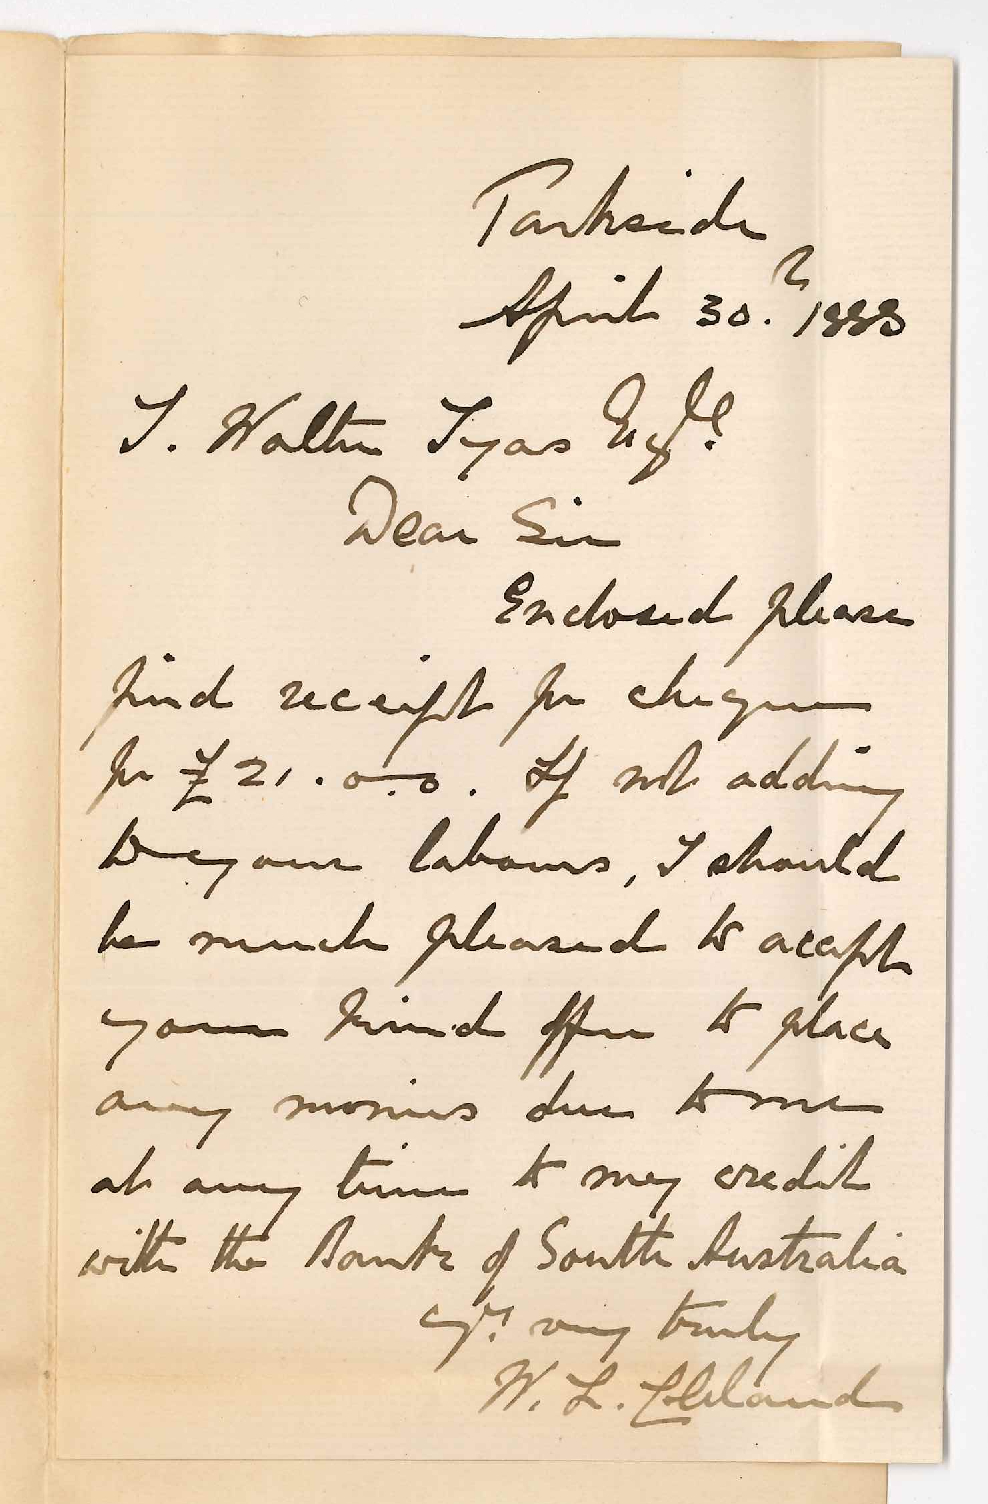 Parkside
April 30th 1883
T. Walter Tyas Esqre
Dear Sir
Enclosed please
find receipt for cheque
for £21.0.0. If not adding
to your labours, I should
be much pleased to accept
your kind offer to place
any monies due to me
at any time to my credit
with the Bank of South Australia
Yrs very truly
W. L. Cleland